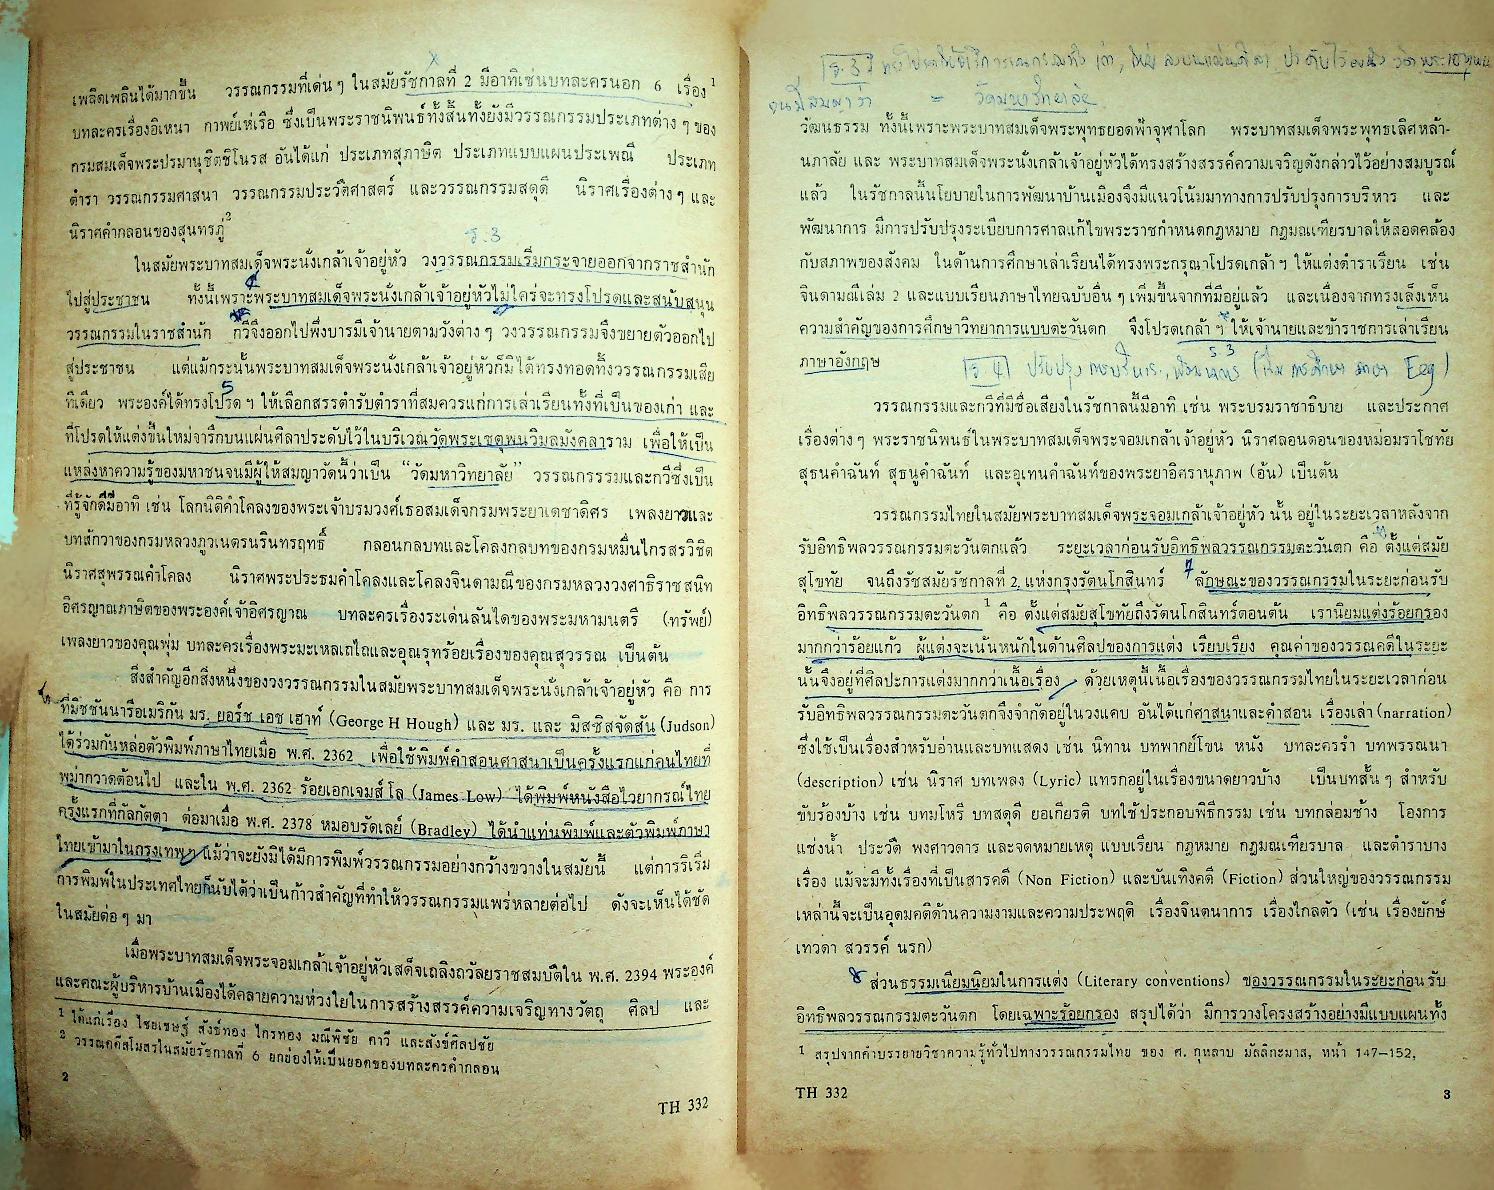 เพลิดเพลินได้มากขึ้น วรรณกรรมที่เด่นๆ ในสมัยรัชกาลที่ 2 มีอาทิเช่นบทละครนอก 6 เรื่อง1
บทละครเรื่องอิเหนา กาพย์เห่เรือ ซึ่งเป็นพระราชนิพนธ์ทั้งสิ้นทั้งยังมีวรรณกรรมประเภทต่างๆ ของ
กรมสมเด็จพระปรมานุชิตชิโนรส อันได้แก่ ประเภทสุภาษิต ประเภทแบบแผนประเพณี ประเภท
ตำรา วรรณกรรมศาสนา วรรณกรรมประวัติศาสตร์ และวรรณกรรมสดุดี นิราศเรื่องต่างๆ และ
นิราศคำกลอนของสุนทรภู่2
ร.3
ในสมัยพระบาทสมเด็จพระนั่งเกล้าเจ้าอยู่หัว วงวรรณกรรมเริ่มกระจายออกจากราชสำนัก
ไปสู่ประชาชน ทั้งนี้เพราะพระบาทสมเด็จพระนั่งเกล้าเจ้าอยู่หัวไม่ใคร่จะทรงโปรดและสนับสนุน
วรรณกรรมในราชสำนัก กวีจึงออกไปพึ่งบารมีเจ้านายตามวังต่างๆ วงวรรณกรรมจึงขยายตัวออกไป
สู่ประชาชน แต่แม้กระนั้นพระบาทสมเด็จพระนั่งเกล้าเจ้าอยู่หัวก็มิได้ทรงทอดทิ้งวรรณกรรมเสีย
ทีเดียว พระองค์ได้ทรงโปรดฯ ให้เลือกสรรตำรับตำราที่สมควรแก่การเล่าเรียนทั้งที่เป็นของเก่า และ
ที่โปรดให้แต่งขึ้นใหม่จารึกบนแผ่นศิลาประดับไว้ในบริเวณวัดพระเชตุพนวิมลมังคลาราม เพื่อให้เป็น
แหล่งหาความรู้ของมหาชนจนมีผู้ให้สมญาวัดนี้ว่าเป็น “วัดมหาวิทยาลัย” วรรณกรรมและกวีซึ่งเป็น
ที่รู้จักดีมีอาทิ เช่น โลกนิติคำโคลงของพระเจ้าบรมวงศ์เธอสมเด็จกรมพระยาเดชาดิศร เพลงยาวและ
บทสักวาของกรมหลวงภูวเนตรนรินทรฤทธิ์ กลอนกลบทและโคลงกลบทของกรมหมื่นไกรสรวิชิต
นิราศสุพรรณคำโคลง นิราศพระประธมคำโคลงและโคลงจินดามณีของกรมหลวงวงศาธิราชสนิท
อิศรญาณภาษิตของพระองค์เจ้าอิศรญาณ บทละครเรื่องระเด่นลันไดของพระมหามนตรี (ทรัพย์)
เพลงยาวของคุณพุ่ม บทละครเรื่องพระมะเหลเถไถและอุณรุทร้อยเรื่องของคุณสุวรรณ เป็นต้น
สิ่งสำคัญอีกสิ่งหนึ่งของวงวรรณกรรมในสมัยพระบาทสมเด็จพระนั่งเกล้าเจ้าอยู่หัว คือ การ
ที่มิชชันนารีอเมริกัน มร. ยอร์ช เอช เฮาท์ (George H Hough) และ มร. และ มิสซิสจัดสัน (Judson)
ได้ร่วมกันหล่อตัวพิมพ์ภาษาไทยเมื่อ พ.ศ. 2362 เพื่อใช้พิมพ์คำสอนศาสนาเป็นครั้งแรกแก่คนไทยที่
พม่ากวาดต้อนไป และใน พ.ศ. 2362 ร้อยเอกเจมส์ โล (James Low) ได้พิมพ์หนังสือไวยากรณ์ไทย
ครั้งแรกที่กัลกัตตา ต่อมาเมื่อ พ.ศ. 2378 หมอบรัดเลย์ (Bradley) ได้นำแท่นพิมพ์และตัวพิมพ์ภาษา
ไทยเข้ามาในกรุงเทพๆ แม้ว่าจะยังมิได้มีการพิมพ์วรรณกรรมอย่างกว้างขวางในสมัยนี้ แต่การริเริ่ม
การพิมพ์ในประเทศไทยก็นับได้ว่าเป็นก้าวสำคัญที่ทำให้วรรณกรรมแพร่หลายต่อไป ดังจะเห็นได้ชัด
ในสมัยต่อๆ มา
เมื่อพระบาทสมเด็จพระจอมเกล้าเจ้าอยู่หัวเสด็จเถลิงถวัลยราชสมบัติใน พ.ศ. 2394 พระองค์
และคณะผู้บริหารบ้านเมืองได้คลายความห่วงใยในการสร้างสรรค์ความเจริญทางวัตถุ ศิลป และ
1 ได้แก่เรื่อง ไชยเชษฐ์ สังข์ทอง ไกรทอง มณีพิชัย คาวี และสังข์ศิลปชัย
2 วรรณคดีสโมสรในสมัยรัชกาลที่ 6 ยกย่องให้เป็นยอดของบทละครคำกลอน
2
TH 332
ร.3
วัฒนธรรม ทั้งนี้เพราะพระบาทสมเด็จพระพุทธยอดฟ้าจุฬาโลก พระบาทสมเด็จพระพุทธเลิศหล้า-
นภาลัย และ พระบาทสมเด็จพระนั่งเกล้าเจ้าอยู่หัวได้ทรงสร้างสรรค์ความเจริญดังกล่าวไว้อย่างสมบูรณ์
แล้ว ในรัชกาลนี้นโยบายในการพัฒนาบ้านเมืองจึงมีแนวโน้มมาทางการปรับปรุงการบริหาร และ
พัฒนาการ มีการปรับปรุงระเบียบการศาลแก้ไขพระราชกำหนดกฎหมาย กฎมณเฑียรบาลให้สอดคล้อง
กับสภาพของสังคม ในด้านการศึกษาเล่าเรียนได้ทรงพระกรุณาโปรดเกล้าฯ ให้แต่งตำราเรียน เช่น
จินดามณีเล่ม 2 และแบบเรียนภาษาไทยฉบับอื่นๆ เพิ่มขึ้นจากที่มีอยู่แล้ว และเนื่องจากทรงเล็งเห็น
ความสำคัญของการศึกษาวิทยาการแบบตะวันตก จึงโปรดเกล้าฯ ให้เจ้านายและข้าราชการเล่าเรียน
ภาษาอังกฤษ
วรรณกรรมและกวีที่มีชื่อเสียงในรัชกาลนี้มีอาทิ เช่น พระบรมราชาธิบาย และประกาศ
เรื่องต่างๆ พระราชนิพนธ์ในพระบาทสมเด็จพระจอมเกล้าเจ้าอยู่หัว นิราศลอนดอนของหม่อมราโชทัย
สุธนคำฉันท์ สุธนูคำฉันท์ และอุเทนคำฉันท์ของพระยาอิศรานุภาพ (อ้น) เป็นต้น
วรรณกรรมไทยในสมัยพระบาทสมเด็จพระจอมเกล้าเจ้าอยู่หัว นั้น อยู่ในระยะเวลาหลังจาก
รับอิทธิพลวรรณกรรมตะวันตกแล้ว ระยะเวลาก่อนรับอิทธิพลวรรณกรรมตะวันตก คือ ตั้งแต่สมัย
สุโขทัย จนถึงรัชสมัยรัชกาลที่ 2 แห่งกรุงรัตนโกสินทร์ ลักษณะของวรรณกรรมในระยะก่อนรับ
อิทธิพลวรรณกรรมตะวันตก1 คือ ตั้งแต่สมัยสุโขทัยถึงรัตนโกสินทร์ตอนต้น เรานิยมแต่งร้อยกรอง
มากกว่าร้อยแก้ว ผู้แต่งจะเน้นหนักในด้านศิลปของการแต่ง เรียบเรียง คุณค่าของวรรณคดีในระยะ
นั้นจึงอยู่ที่ศิลปะการแต่งมากกว่าเนื้อเรื่อง ด้วยเหตุนี้เนื้อเรื่องของวรรณกรรมไทยในระยะเวลาก่อน
รับอิทธิพลวรรณกรรมตะวันตกจึงจำกัดอยู่ในวงแคบ อันได้แก่ศาสนาและคำสอน เรื่องเล่า (narration)
ซึ่งใช้เป็นเรื่องสำหรับอ่านและบทแสดง เช่น นิทาน บทพากย์โขน หนัง บทละครรำ บทพรรณนา
(description) เช่น นิราศ บทเพลง (Lyric) แทรกอยู่ในเรื่องขนาดยาวบ้าง เป็นบทสั้นๆ สำหรับ
ขับร้องบ้าง เช่น บทมโหรี บทสดุดี ยอเกียรติ บทใช้ประกอบพิธีกรรม เช่น บทกล่อมช้าง โองการ
แช่งน้ำ ประวัติ พงศาวดาร และจดหมายเหตุ แบบเรียน กฎหมาย กฎมณเฑียรบาล และตำราบาง
เรื่อง แม้จะมีทั้งเรื่องที่เป็นสารคดี (Non Fiction) และบันเทิงคดี (Fiction) ส่วนใหญ่ของวรรณกรรม
เหล่านี้จะเป็นอุดมคติด้านความงามและความประพฤติ เรื่องจินตนาการ เรื่องไกลตัว (เช่น เรื่องยักษ์
เทวดา สวรรค์ นรก)
ส่วนธรรมเนียมนิยมในการแต่ง (Literary conventions) ของวรรณกรรมในระยะก่อนรับ
อิทธิพลวรรณกรรมตะวันตก โดยเฉพาะร้อยกรอง สรุปได้ว่า มีการวางโครงสร้างอย่างมีแบบแผนทั้ง
1 สรุปจากคำบรรยายวิชาความรู้ทั่วไปทางวรรณกรรมไทย ของ ศ. กุหลาบ มัลลิกะมาส, หน้า 147–152,
TH 332
3